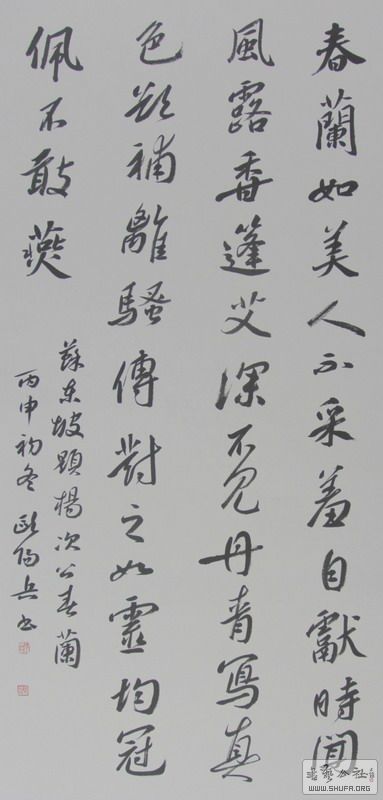 春蘭如美人不采羞自獻時聞
風露香蓬艾深不見丹青寫真
色欲補離騷傳對之如靈均冠
佩不敢燕
蘇东坡題楊次公春蘭
丙申初冬歐陽兵书
書藝公社
WWW.SHUFA.ORG